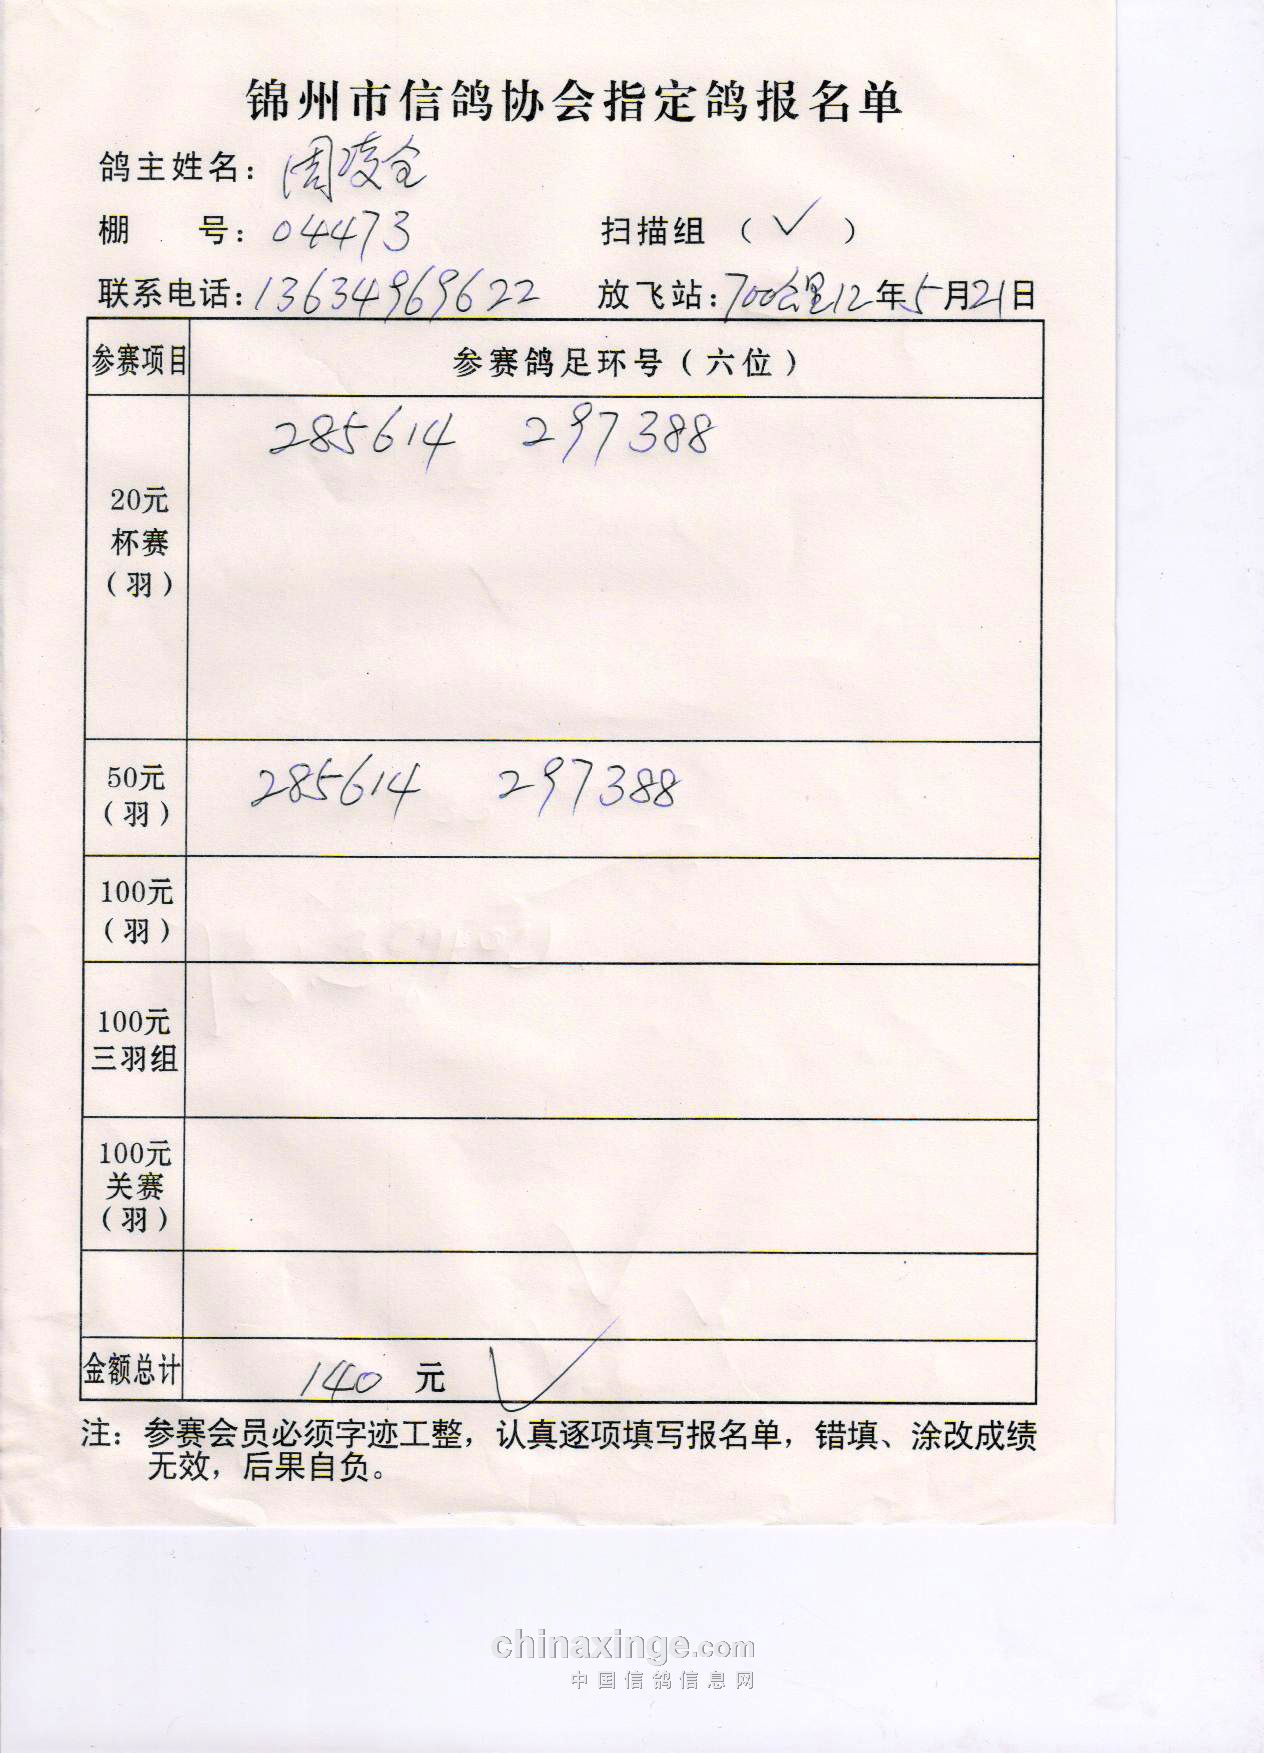 锦州市信鸽协会指定鸽报名单
鸽主姓名：周凌全
棚 号：04473 扫描组（✓）
联系电话：13634969622 放飞站：700公里12年5月21日
参赛项目 参赛鸽足环号（六位）
285614 297388
20元
杯赛
（羽）
50元
（羽）
285614 297388
100元
（羽）
100元
三羽组
100元
关赛
（羽）
金额总计 140 元 ✓
注：参赛会员必须字迹工整，认真逐项填写报名单，错填、涂改成绩
无效，后果自负。
chinaxinge.com
中国信鸽信息网